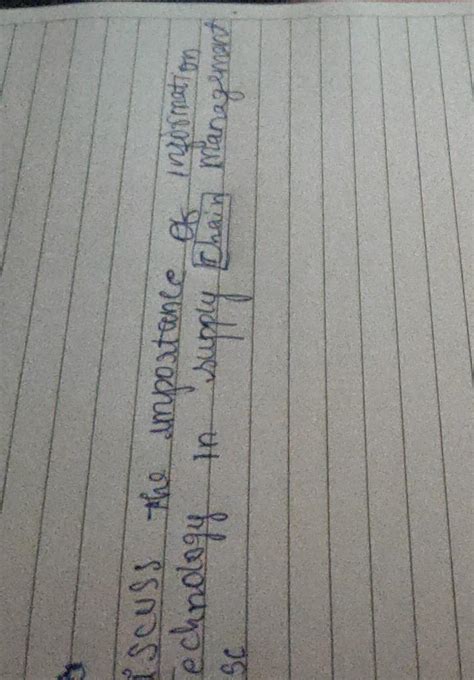 iscuss the importance of information
echnology in supply chain Management
sc